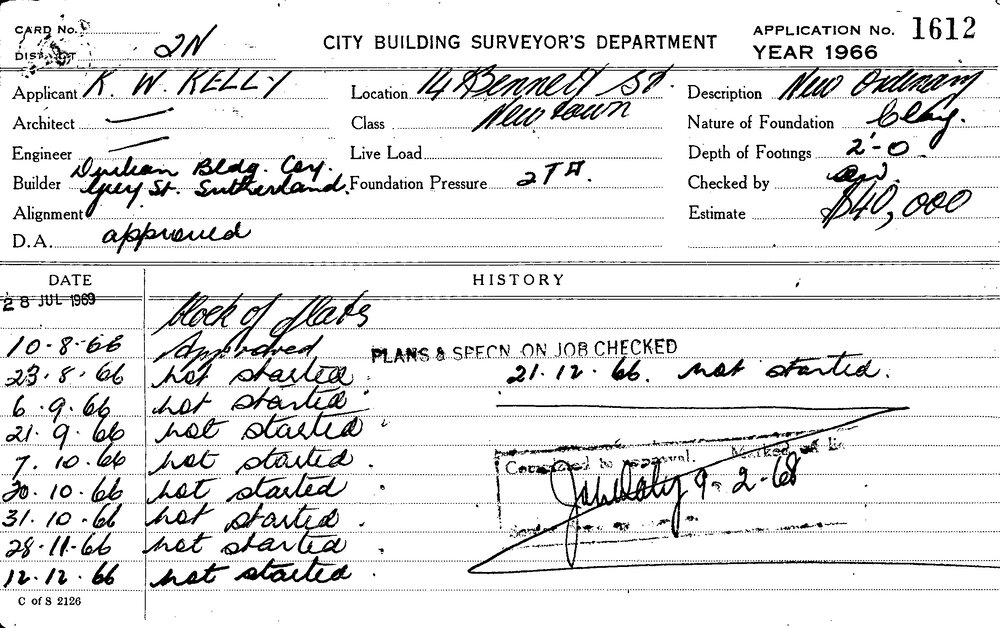 CARD No.
DISTRICT 2N
CITY BUILDING SURVEYOR'S DEPARTMENT
APPLICATION No. 1612
YEAR 1966
Applicant K. W. KELLY Location 14 Bennett St. Description New Ordinary
Architect — Class Newtown Nature of Foundation Clay.
Engineer — Live Load Depth of Footings 2'-0
Builder Bldg. Coy. Grey St. Sutherland. Foundation Pressure 2 T Checked by
Alignment Estimate $40,000
D.A. approved
DATE HISTORY
28 JUL 1969 block of flats
10-8-66 Approved PLANS & SPECN. ON JOB CHECKED
23.8.66 not started 21.12.66. not started.
6.9.66 not started
21.9.66 not started
7.10.66 not started.
20.10.66 not started
31.10.66 not started.
28.11.66 not started
12.12.66 not started.
to approval. Marked
9-2-68
C of S 2126